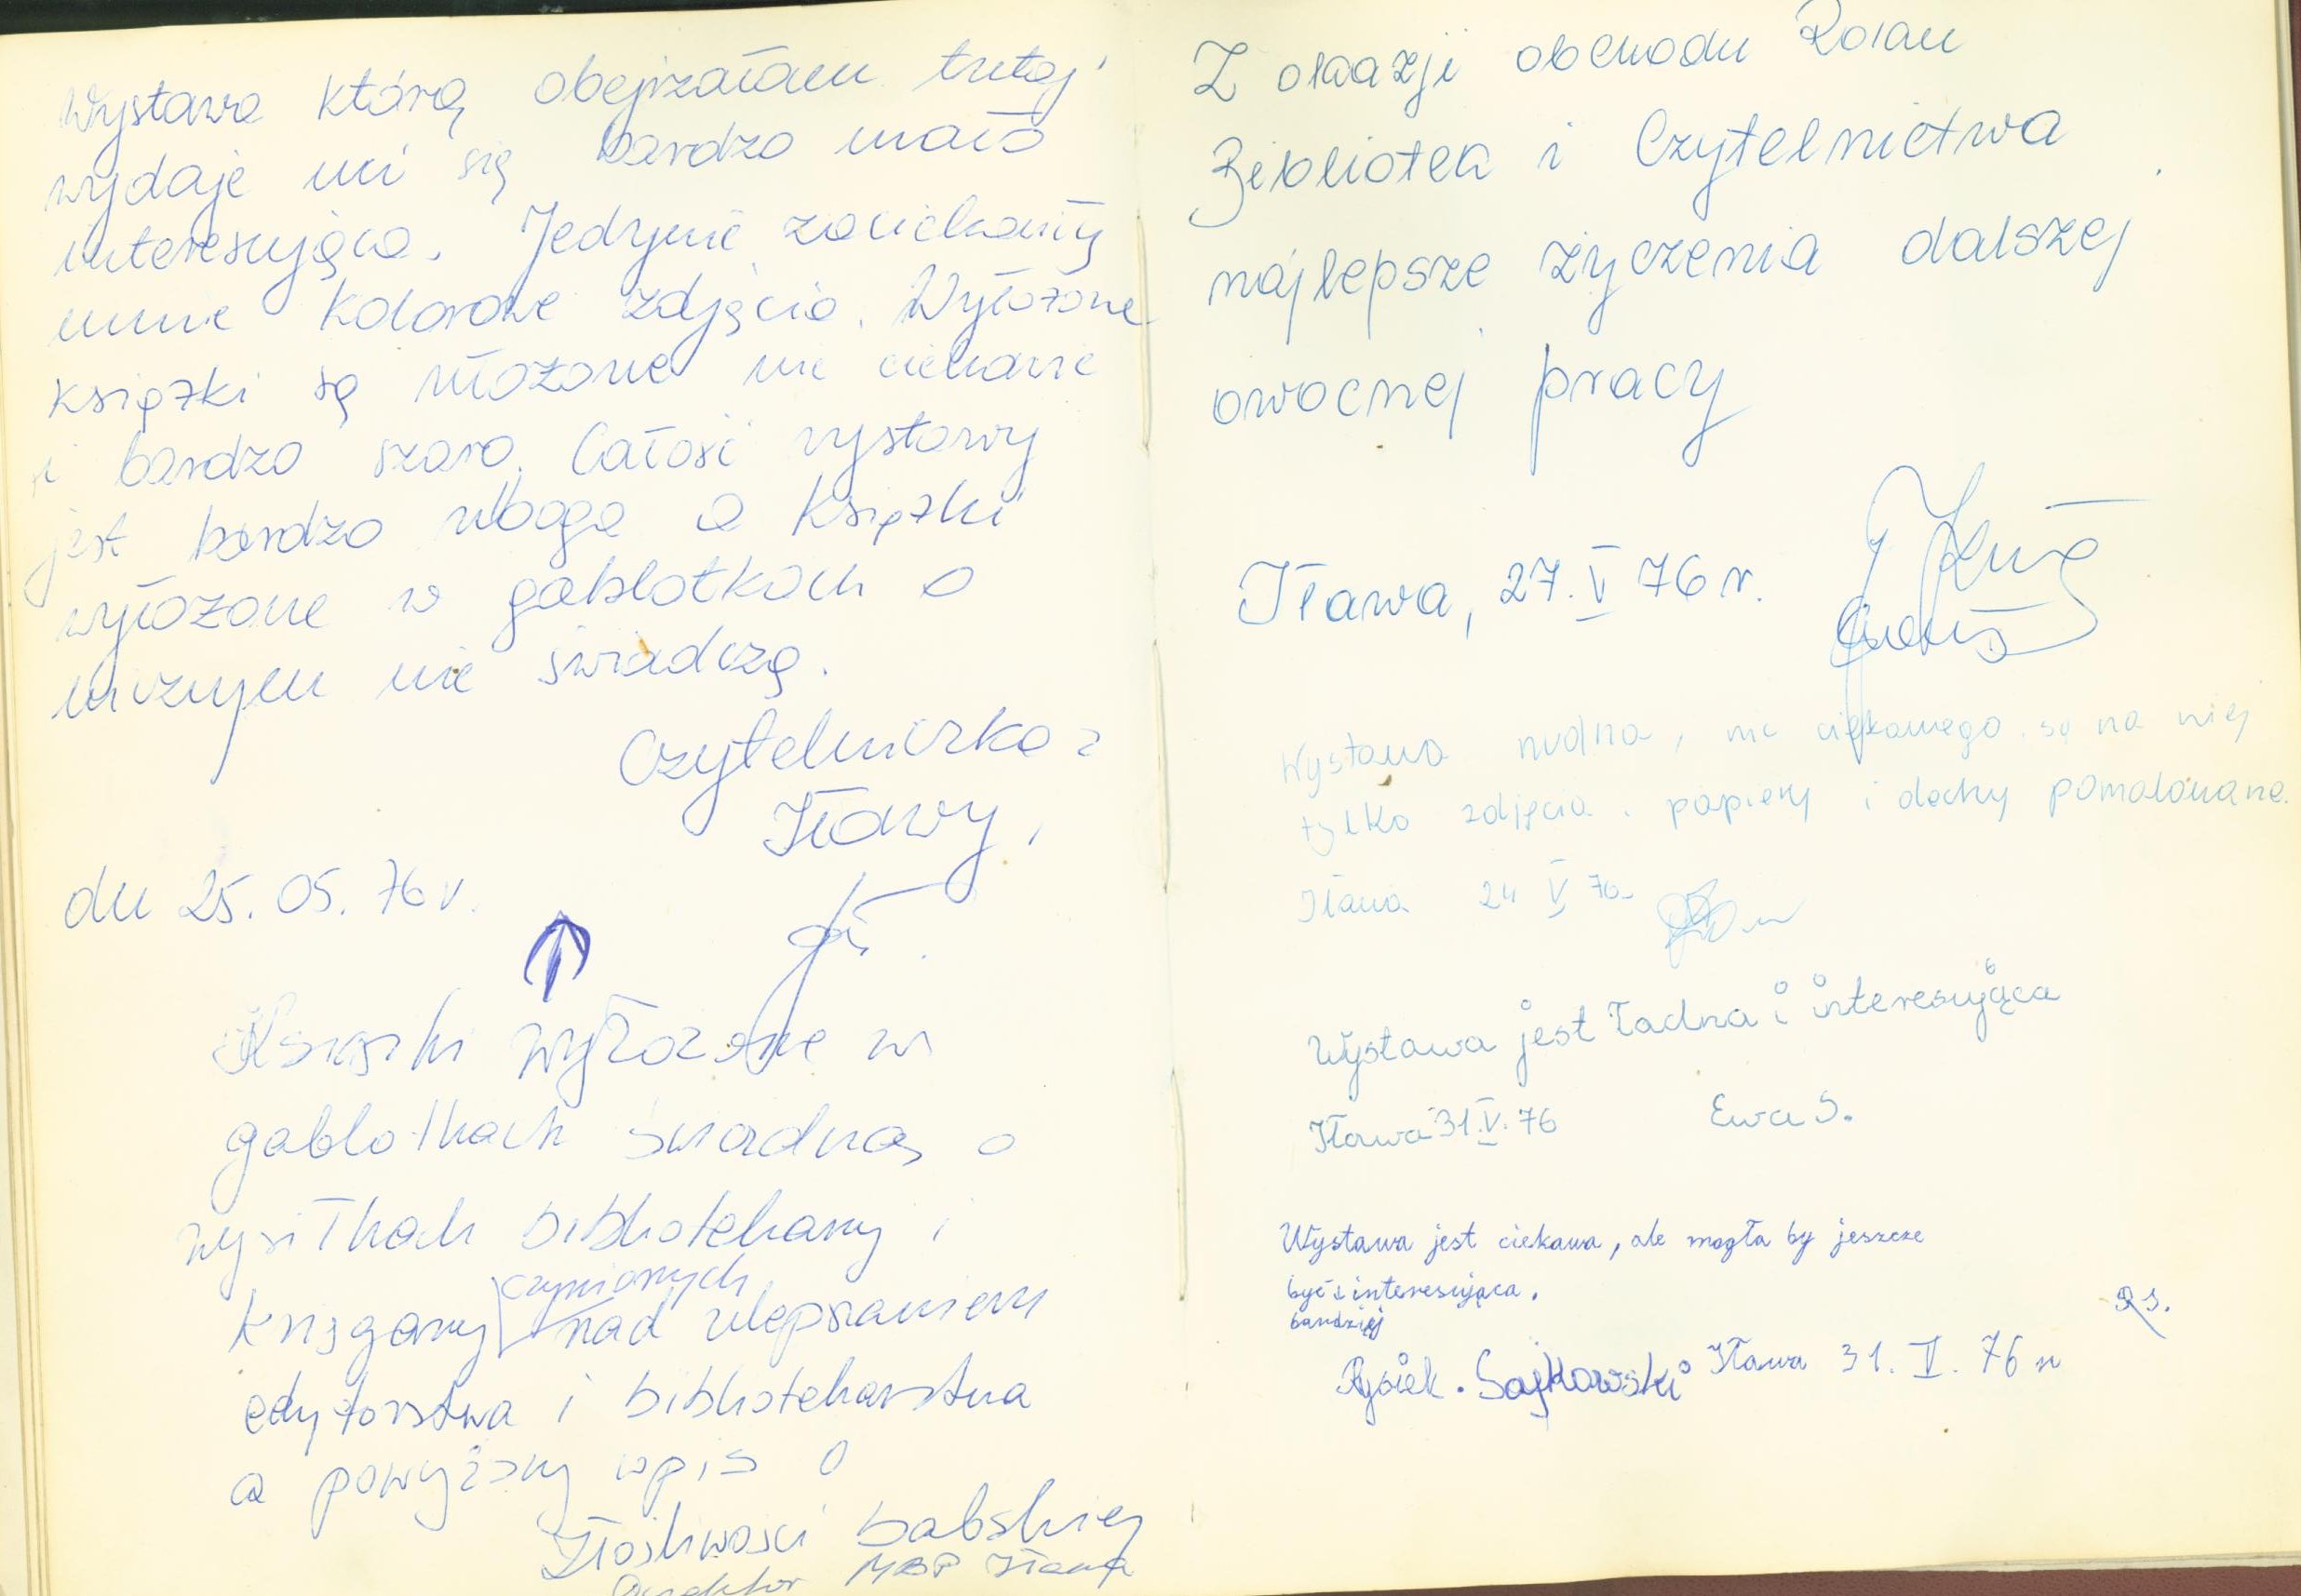 Wystawa którą obejrzałam tutaj
wydaje mi się bardzo mało
interesująca. Jedynie zaciekawiły
mnie kolorowe zdjęcia. Wyłożone
książki są ułożone nie ciekawie
i bardzo szaro. Całość wystawy
jest bardzo uboga a książki
wyłożone w gablotkach o
niczym nie świadczą.
Czytelniczka z
Iławy,
dn 25.05.76 r.
Książki wyłożone w
gablotkach świadczą o
wysiłkach bibliotekarzy i
księgarzy czynionych nad ulepszaniem
edytorstwa i bibliotekarstwa
a powyższy wpis o
złośliwości babskiej
Dyrektor MBP Iława
Z okazji obchodu Dni
Bibliotek i Czytelnictwa
najlepsze życzenia dalszej
owocnej pracy
Iława, 27.V 76 r.
Wystawa nudna, nic ciekawego są na niej
tylko zdjęcia, papiery i dechy pomalowane.
Iława 24 V 76
Wystawa jest ładna i interesująca
Iława 31.V.76 Ewa S.
Wystawa jest ciekawa, ale mogła by jeszcze
być interesująca.
bardziej
RS.
Rysiek. Sajkowski Iława 31. V. 76 r